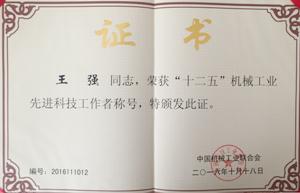 证书
王强 同志，荣获“十二五”机械工业
先进科技工作者称号，特颁发此证。
中国机械工业联合会
编号：2016111012
二〇一六年十月十八日